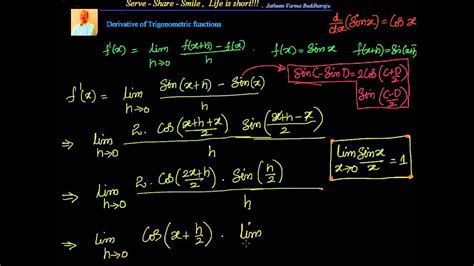 Serve - Share - Smile , Life is short!!! . Jatheen Varma Buddharaju
Derivative of Trigonometric functions
d/dx (Sin x) = Cos x
f'(x) = lim h→0 f(x+h) - f(x) / h
f(x) = Sin x f(x+h) = Sin(x+h)
f'(x) = lim h→0 Sin(x+h) - Sin(x) / h
Sin C - Sin D = 2 Cos(C+D/2) Sin(C-D/2)
⇒ lim h→0 2. Cos(x+h+x/2) Sin(x+h-x/2) / h
lim x→0 Sin x / x = 1
⇒ lim h→0 2. Cos(2x+h/2) . Sin(h/2) / h
⇒ lim h→0 Cos(x + h/2) . lim